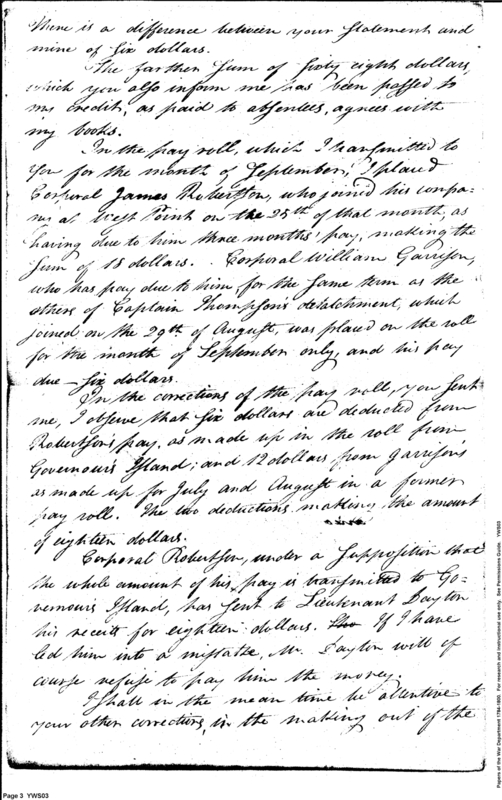 There is a difference between your statement and
mine of six dollars.
The farther sum of sixty eight dollars,
which you also inform me has been passed to
my credit, as paid to absentees, agrees with
my books.
In the pay roll, which I transmitted to
you for the month of September, I placed
Corporal James Robertson, who joined his compa-
ny at West Point on the 25th of that month, as
having due to him three months' pay, making the
sum of 18 dollars. Corporal William Garrison,
who has pay due to him, for the same term as the
others of Captain Thompson's detatchment, which
joined on the 29th of August, was placed on the roll
for the month of September only, and his pay
due — six dollars.
In the corrections of the pay roll, you sent
me, I observe that six dollars are deducted from
Robertson's pay, as made up in the roll from
Governour's Island; and 12 dollars from Garrison's
as made up for July and August in a former
pay roll. The two deductions making the amount
of eighteen dollars.
Corporal Robertson, under a supposition that
the whole amount of his pay is transmitted to Go-
vernours Island, has sent to Lieutenant Dayton
his receits for eighteen dollars. If I have
led him into a mistake, Mr. Dayton will of
course refuse to pay him the money.
I shall in the mean time be attentive to
your other corrections, in the making out of the
Page 3 YWS03
Papers of the War Department 1784-1800. For research and instructional use only. See Permissions Guide. YWS03